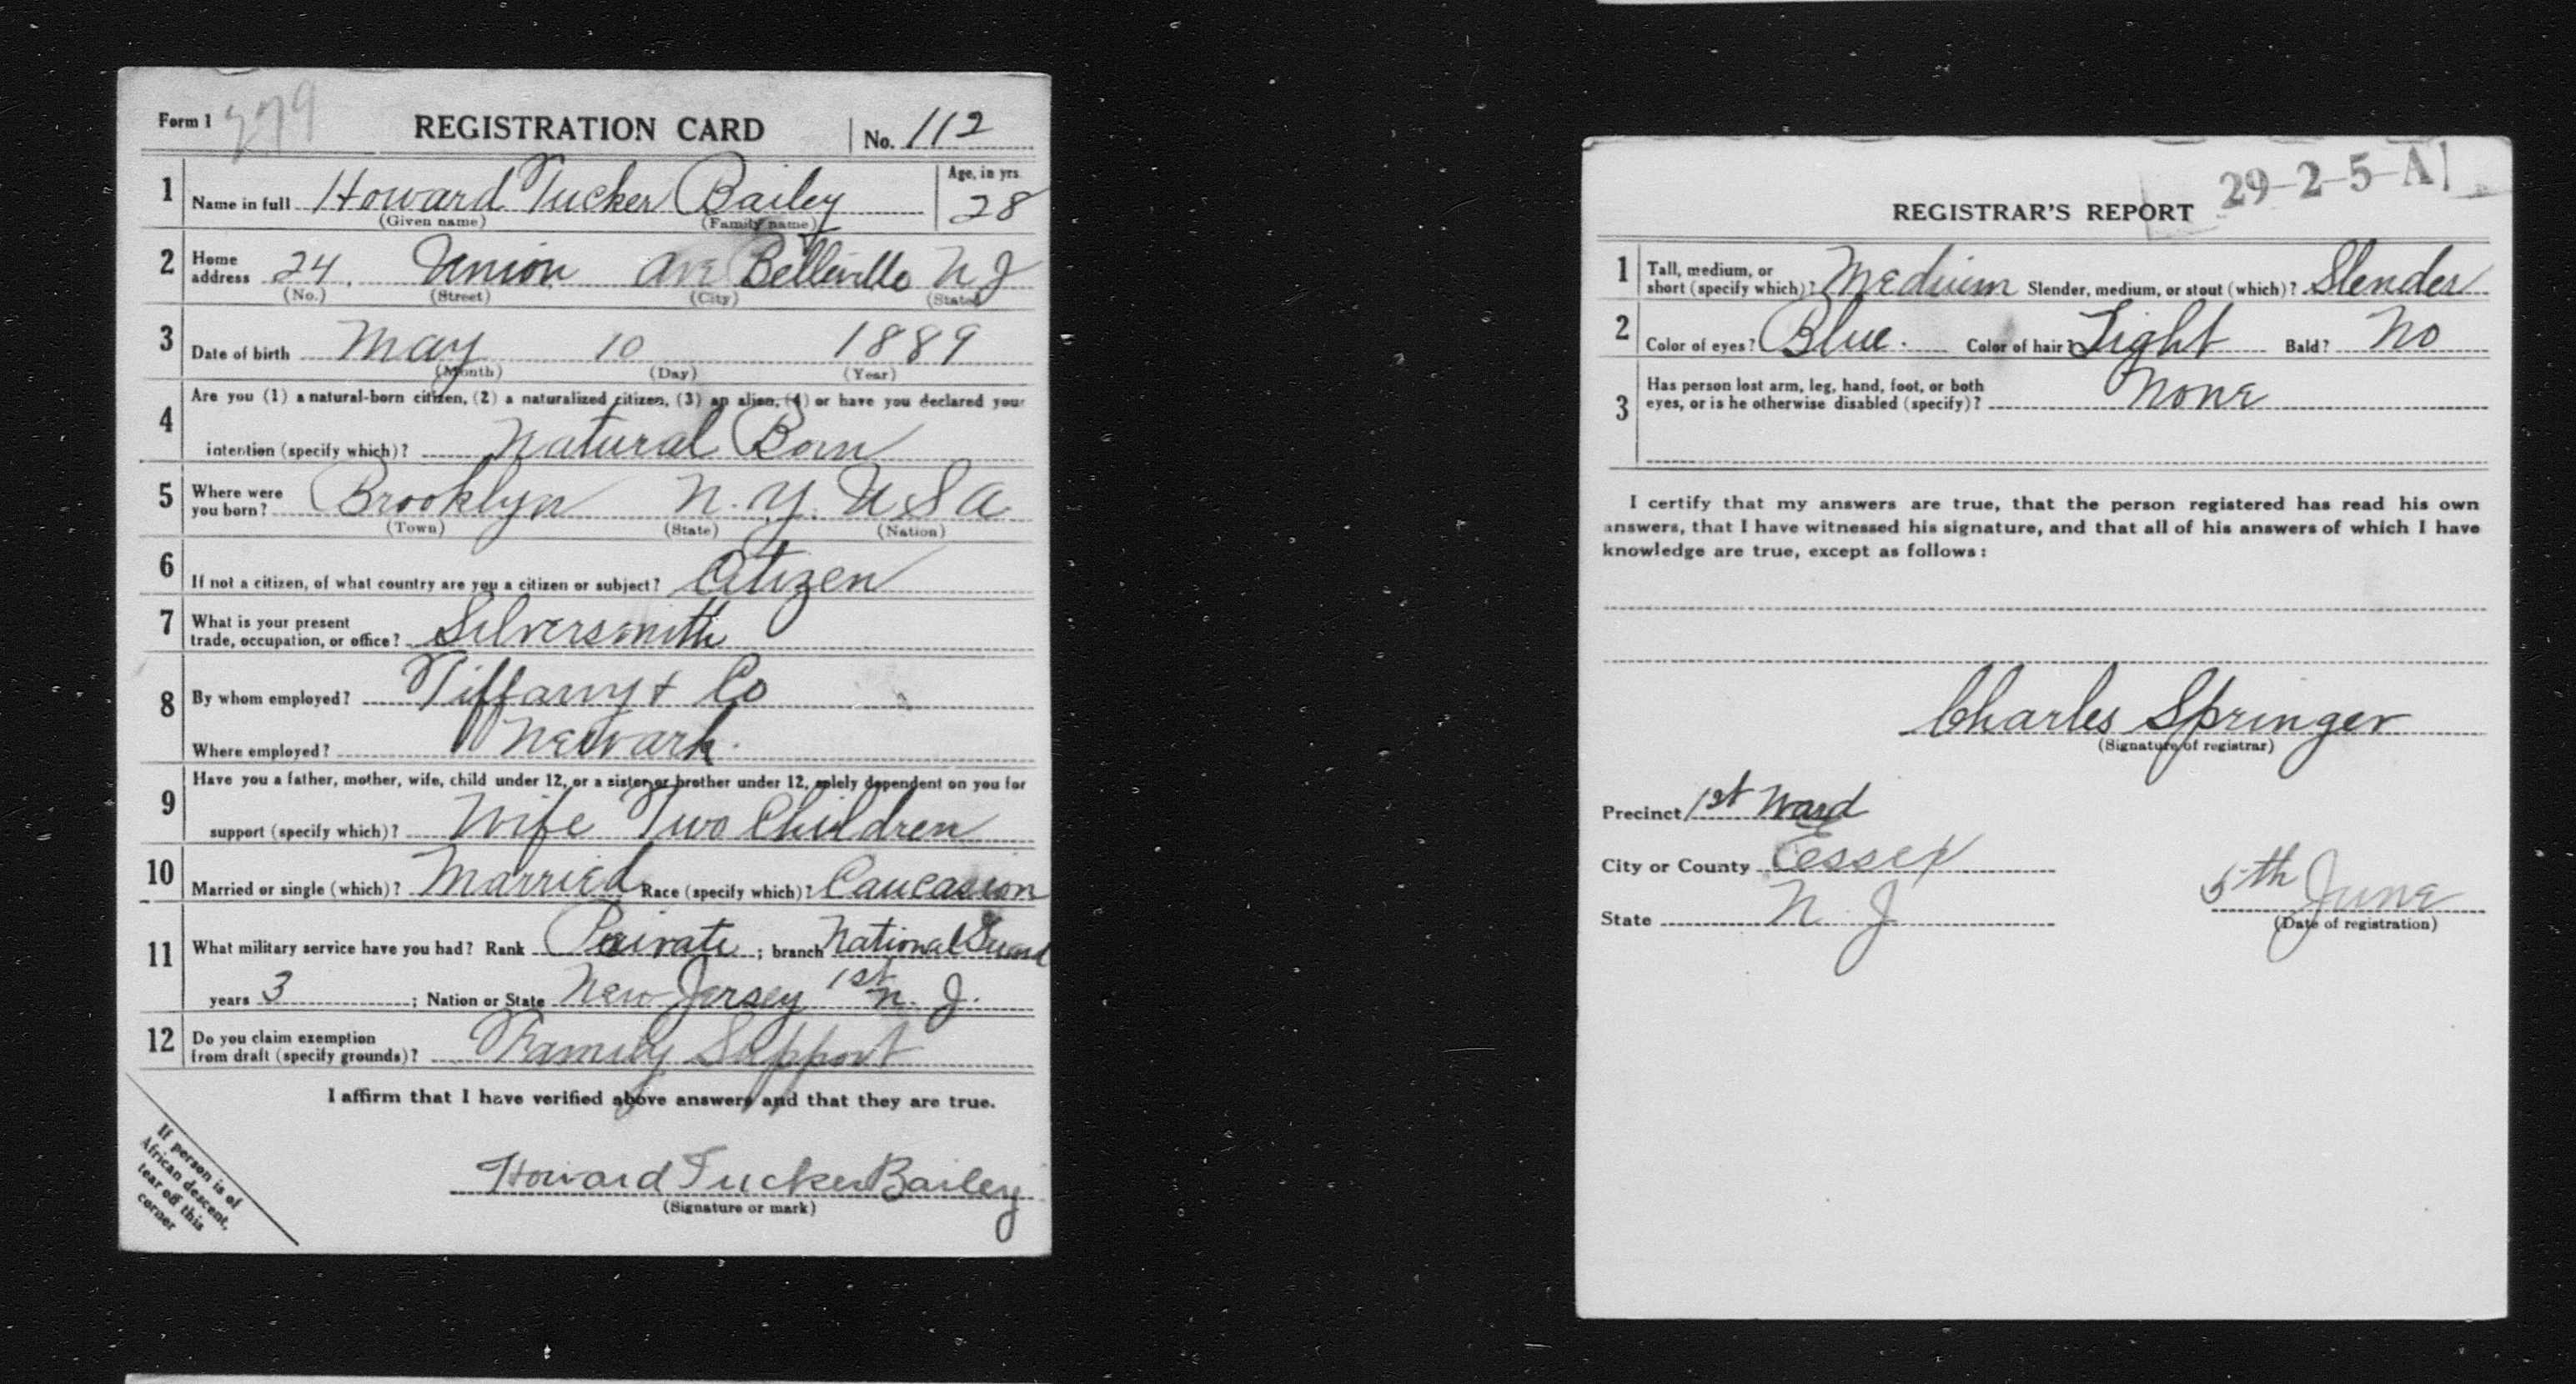 Form 1 279 REGISTRATION CARD No. 112
1 Name in full Howard Tucker Bailey Age, in yrs. 28
(Given name) (Family name)
2 Home address 24. Union Ave Belleville N J
(No.) (Street) (City) (State)
3 Date of birth May 10 1889
(Month) (Day) (Year)
4 Are you (1) a natural-born citizen, (2) a naturalized citizen, (3) an alien, (4) or have you declared your
intention (specify which)? Natural Born
5 Where were you born? Brooklyn N. Y. U S A
(Town) (State) (Nation)
6 If not a citizen, of what country are you a citizen or subject? Citizen
7 What is your present
trade, occupation, or office? Silversmith
8 By whom employed? Tiffany + Co
Where employed? Newark.
9 Have you a father, mother, wife, child under 12, or a sister or brother under 12, solely dependent on you for
support (specify which)? Wife Two Children
10 Married or single (which)? Married Race (specify which)? Caucasion
11 What military service have you had? Rank Private ; branch National Guard
years 3 ; Nation or State New Jersey 1st N. J.
12 Do you claim exemption
from draft (specify grounds)? Family Support
I affirm that I have verified above answers and that they are true.
Howard Tucker Bailey
(Signature or mark)
If person is of
African descent,
tear off this
corner
29-2-5-A
REGISTRAR'S REPORT
1 Tall, medium, or
short (specify which)? Medium Slender, medium, or stout (which)? Slender
2 Color of eyes? Blue. Color of hair? Light Bald? No
3 Has person lost arm, leg, hand, foot, or both
eyes, or is he otherwise disabled (specify)? None
I certify that my answers are true, that the person registered has read his own
answers, that I have witnessed his signature, and that all of his answers of which I have
knowledge are true, except as follows:
Charles Springer
(Signature of registrar)
Precinct 1st Ward
City or County Essex
State N. J
5th June
(Date of registration)